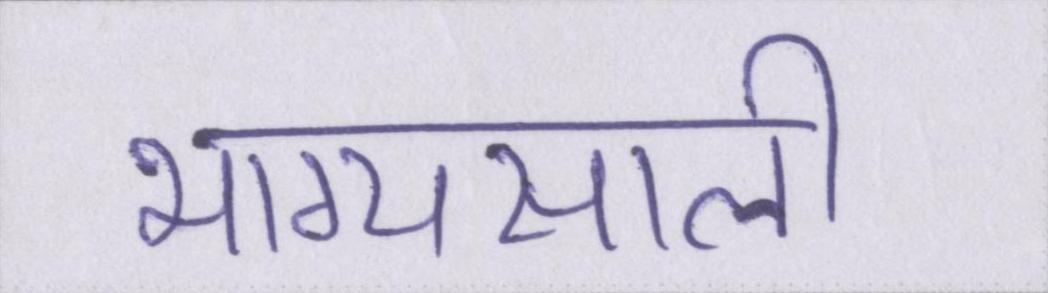 भाग्यसाली